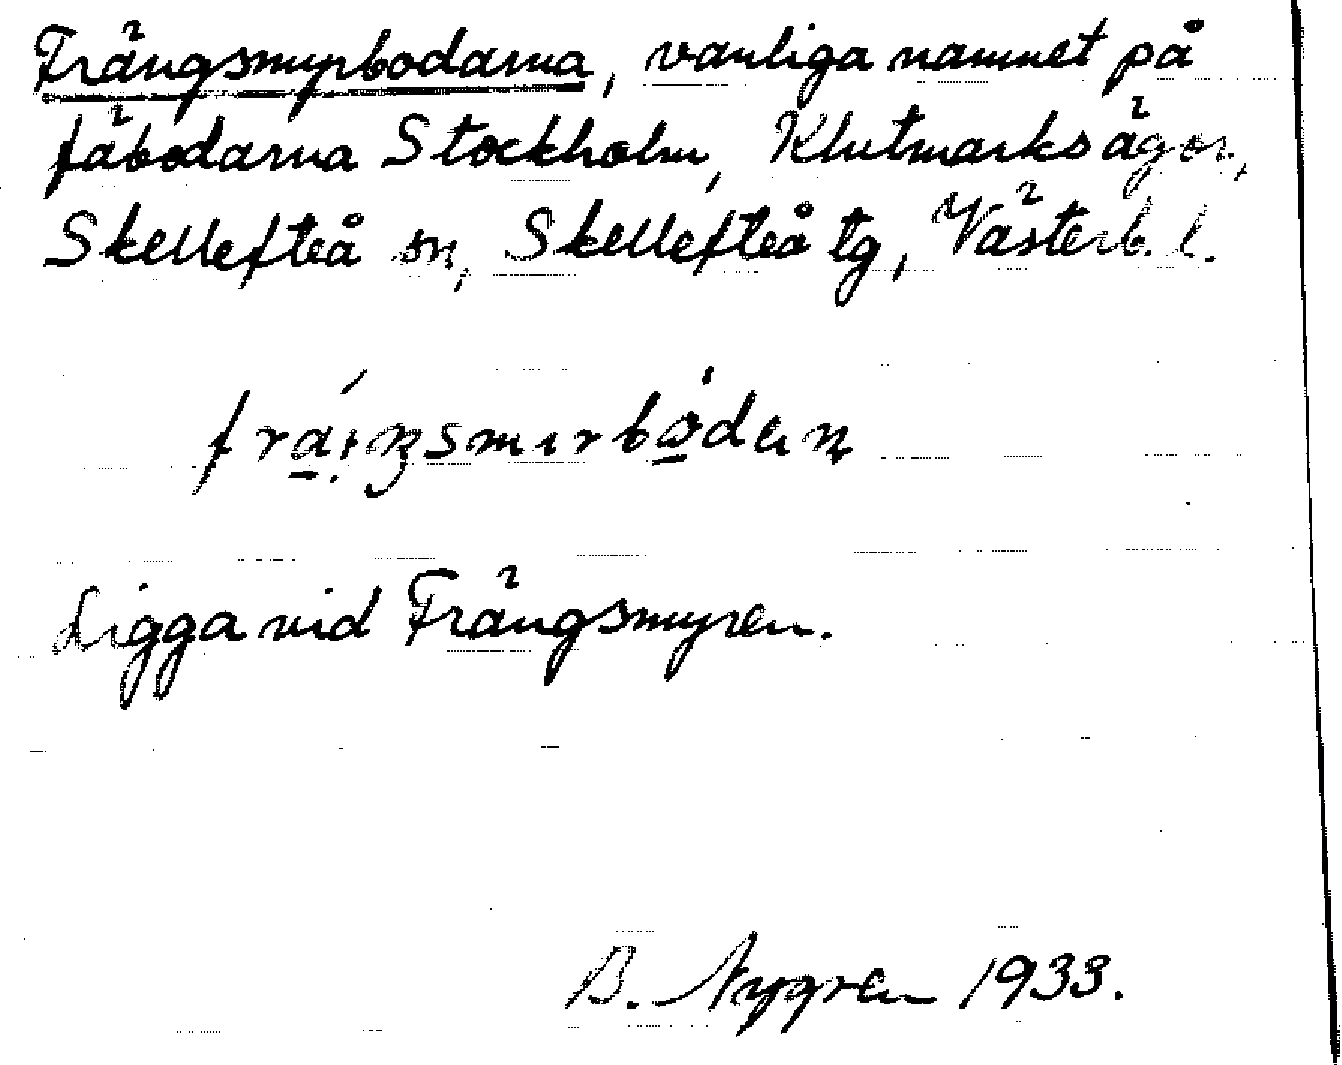 Frängsmyrbodarna, vanliga namnet på
fäbodarna Stockholm, Klutmarks ägor,
Skellefteå sn, Skellefteå tg, Västerb. l.
Ligga vid Frängsmyren.
B. Nygren 1933.